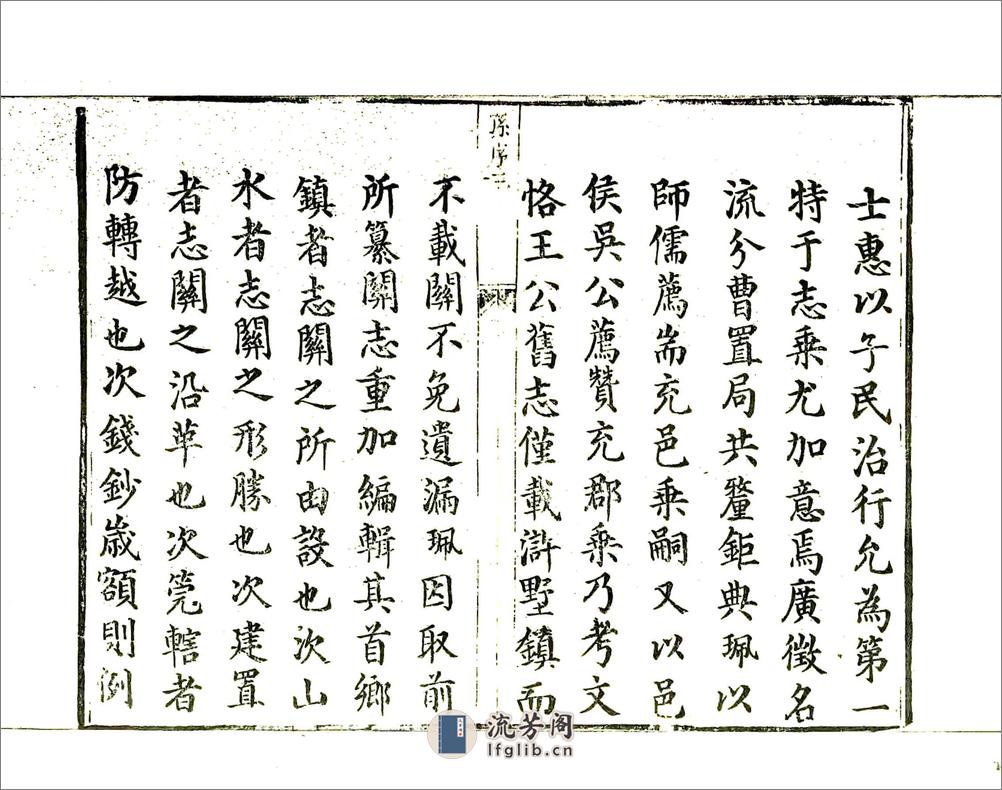 士惠以子民治行允為第一
特于志乗尤加意焉廣徴名
流分曹置局共釐鉅典珮以
師儒薦耑充邑乗嗣又以邑
侯吳公薦贊充郡乗乃考文
恪王公舊志僅載滸墅鎮而
孫序 三
不載關不免遺漏珮因取前
所纂關志重加編輯其首鄉
鎮者志關之所由設也次山
水者志關之形勝也次建置
者志關之沿革也次筦轄者
防轉越也次錢鈔歲額則例
流芳阁
lfglib.cn